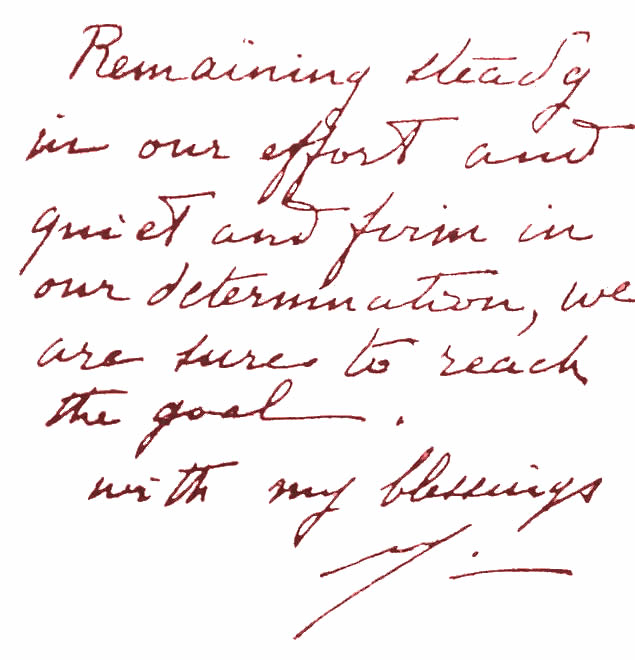 Remaining steady
in our effort and
quiet and firm in
our determination, we
are sure to reach
the goal.
with my blessings